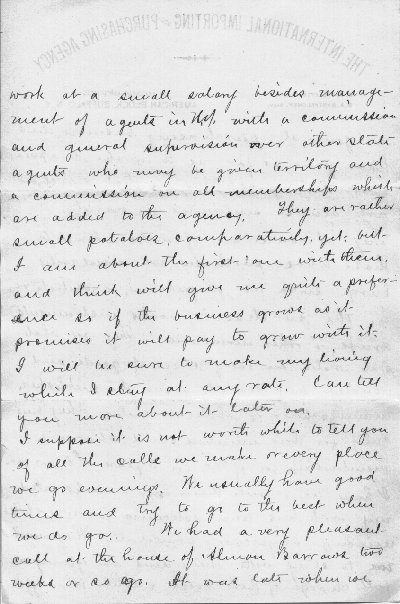 THE INTERNATIONAL IMPORTING PURCHASING AGENCY
work at a small salary besides manage-
ment of agents in with a commission
and general supervision over other state
agents who may be given territory and
a commission on all memberships which
are added to the agency. They are rather
small potatoes, comparatively, yet, but
I am about the first one with them,
and think will give me quite a prefer-
ence so if the business grows as it
promises it will pay to grow with it.
I will be sure to make my living
while I stay at any rate. Can tell
you more about it later on.
I suppose it is not worth while to tell you
of all the calls we make or every place
we go evenings. We usually have good
times and try to go to the best when
we do go. We had a very pleasant
call at the house of Almon Barrows two
weeks or so ago. It was late when we